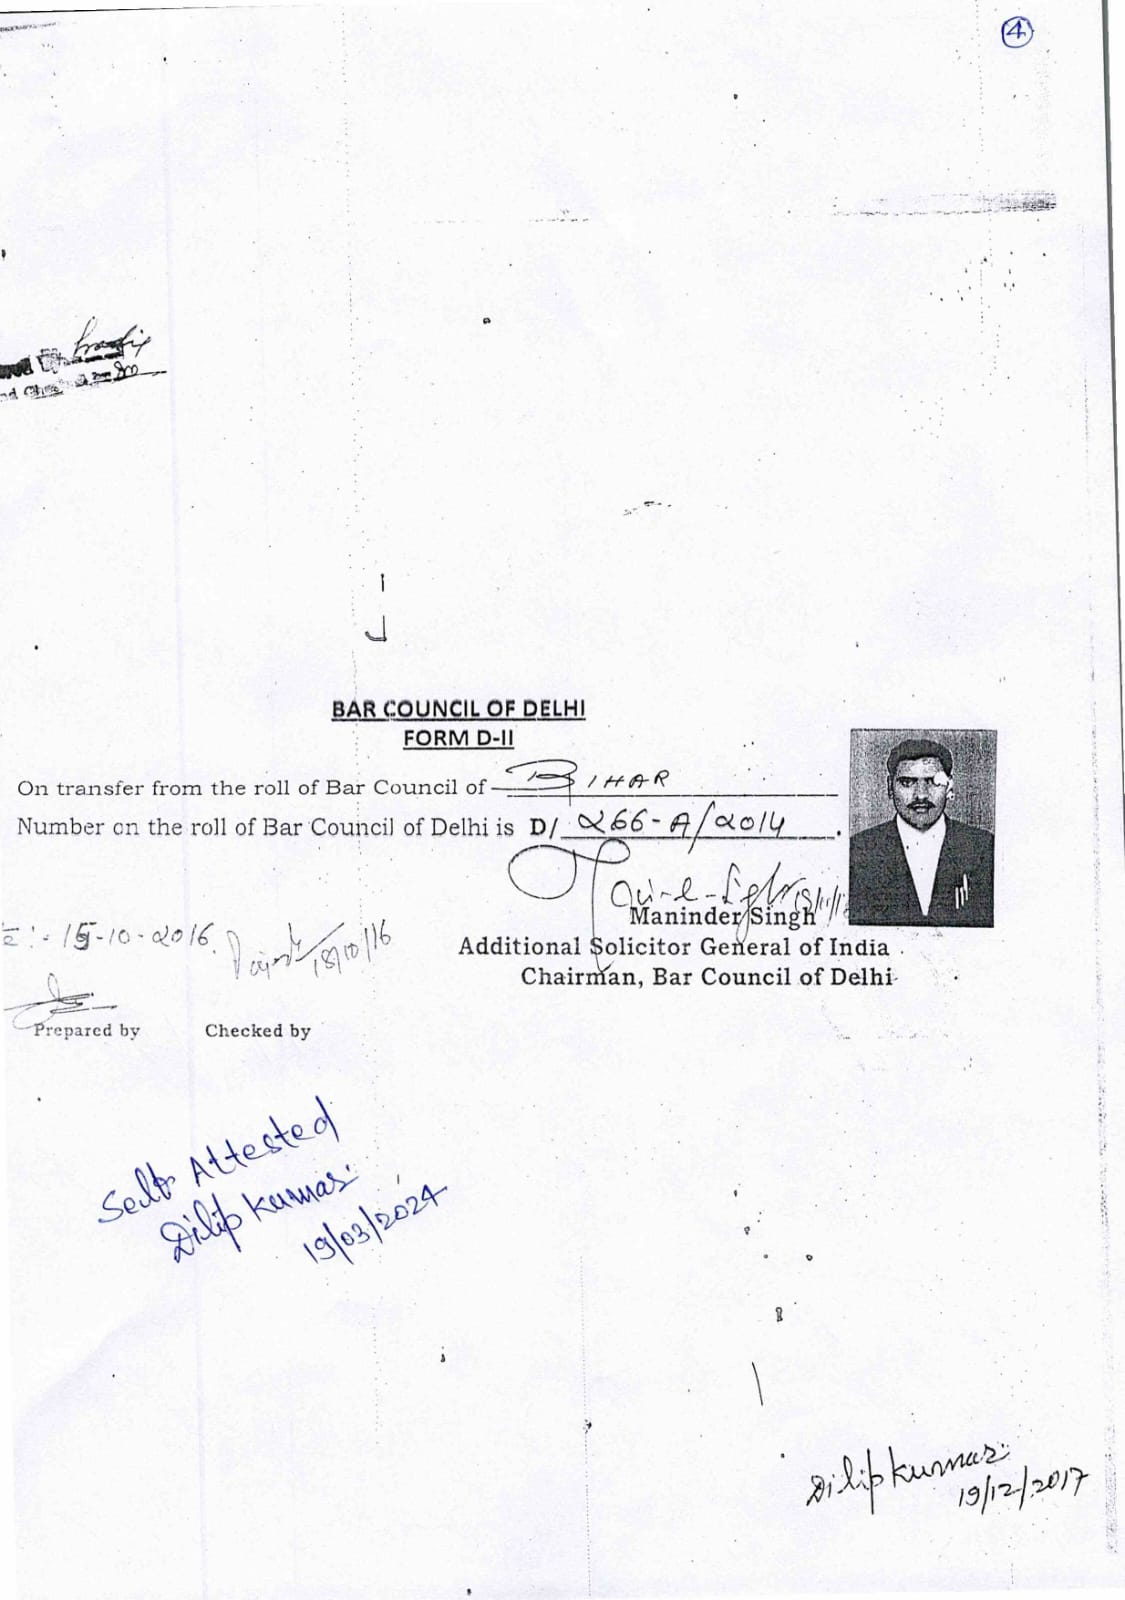 4
BAR COUNCIL OF DELHI
FORM D-II
On transfer from the roll of Bar Council of BIHAR
Number on the roll of Bar Council of Delhi is D/ 266-A/2014.
Maninder Singh
Additional Solicitor General of India
Chairman, Bar Council of Delhi
:- 15-10-2016. 18/10/16
Prepared by Checked by
Self Attested
Dilip Kumar
19/03/2024
Dilip Kumar
19/12/2017